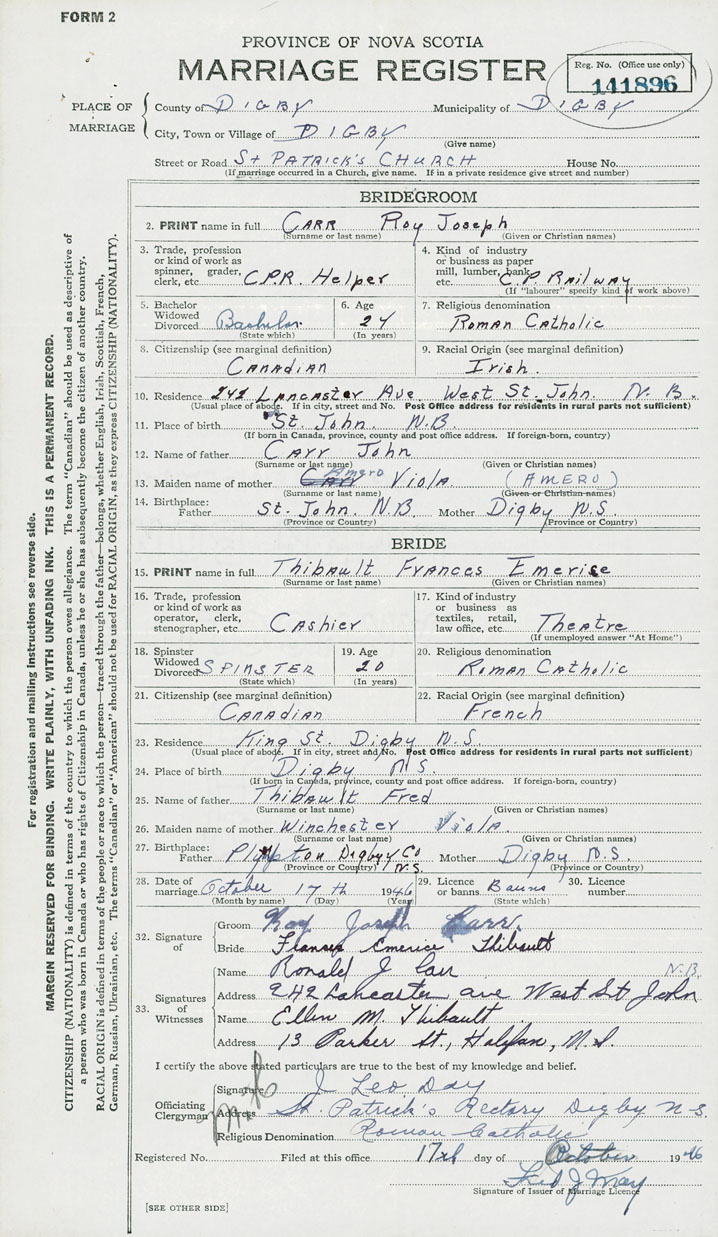 FORM 2
PROVINCE OF NOVA SCOTIA
MARRIAGE REGISTER
Reg. No. (Office use only)
141896
PLACE OF MARRIAGE
County of DIGBY Municipality of DIGBY
City, Town or Village of DIGBY
(Give name)
Street or Road St PATRICK'S CHURCH House No.
(If marriage occurred in a Church, give name. If in a private residence give street and number)
BRIDEGROOM
2. PRINT name in full CARR Roy Joseph
(Surname or last name) (Given or Christian names)
3. Trade, profession or kind of work as spinner, grader, clerk, etc. C.P.R. Helper
4. Kind of industry or business as paper mill, lumber, bank, etc. C.P. Railway
(If "labourer" specify kind of work above)
5. Bachelor Widowed Divorced Bachelor
(State which)
6. Age 24
(In years)
7. Religious denomination
Roman Catholic
8. Citizenship (see marginal definition)
Canadian
9. Racial Origin (see marginal definition)
Irish.
10. Residence 242 Lancaster Ave. West St. John. N. B.
(Usual place of abode. If in city, street and No. Post Office address for residents in rural parts not sufficient)
11. Place of birth St. John. N.B.
(If born in Canada, province, county and post office address. If foreign-born, country)
12. Name of father Carr John
(Surname or last name) (Given or Christian names)
13. Maiden name of mother Carr Amero Viola (AMERO)
(Surname or last name) (Given or Christian names)
14. Birthplace: Father St. John. N.B. Mother Digby N.S.
(Province or Country) (Province or Country)
BRIDE
15. PRINT name in full Thibault Frances Emerise
(Surname or last name) (Given or Christian names)
16. Trade, profession or kind of work as operator, clerk, stenographer, etc. Cashier
17. Kind of industry or business as textiles, retail, law office, etc. Theatre
(If unemployed answer "At Home")
18. Spinster Widowed Divorced SPINSTER
(State which)
19. Age 20
(In years)
20. Religious denomination
Roman Catholic
21. Citizenship (see marginal definition)
Canadian
22. Racial Origin (see marginal definition)
French
23. Residence King St. Digby N.S.
(Usual place of abode. If in city, street and No. Post Office address for residents in rural parts not sufficient)
24. Place of birth Digby N.S.
(If born in Canada, province, county and post office address. If foreign-born, country)
25. Name of father Thibault Fred
(Surname or last name) (Given or Christian names)
26. Maiden name of mother Winchester Viola
(Surname or last name) (Given or Christian names)
27. Birthplace: Father Plympton Digby Co N.S. Mother Digby N.S.
(Province or Country) (Province or Country)
28. Date of marriage October 17th 1946
(Month by name) (Day) (Year)
29. Licence or banns Banns
(State which)
30. Licence number
32. Signature of
Groom Roy Joseph Carr.
Bride Frances Emerice Thibault
33. Signatures of Witnesses
Name Ronald J Carr
N.B.
Address 242 Lancaster ave West St John
Name Ellen M. Thibault
Address 13 Parker St., Halifax, N.S.
I certify the above stated particulars are true to the best of my knowledge and belief.
Officiating Clergyman
Signature J Leo Day
Address St. Patrick's Rectory Digby N.S.
Religious Denomination Roman Catholic
Registered No. Filed at this office 17th day of October 1946
Signature of Issuer of Marriage Licence
[SEE OTHER SIDE]
For registration and mailing instructions see reverse side.
MARGIN RESERVED FOR BINDING. WRITE PLAINLY, WITH UNFADING INK. THIS IS A PERMANENT RECORD.
CITIZENSHIP (NATIONALITY) is defined in terms of the country to which the person owes allegiance. The term "Canadian" should be used as descriptive of
a person who was born in Canada or who has rights of Citizenship in Canada, unless he or she has subsequently become the citizen of another country.
RACIAL ORIGIN is defined in terms of the people or race to which the person—traced through the father—belongs, whether English, Irish, Scottish, French,
German, Russian, Ukrainian, etc. The terms "Canadian" or "American" should not be used for RACIAL ORIGIN, as they express CITIZENSHIP (NATIONALITY).